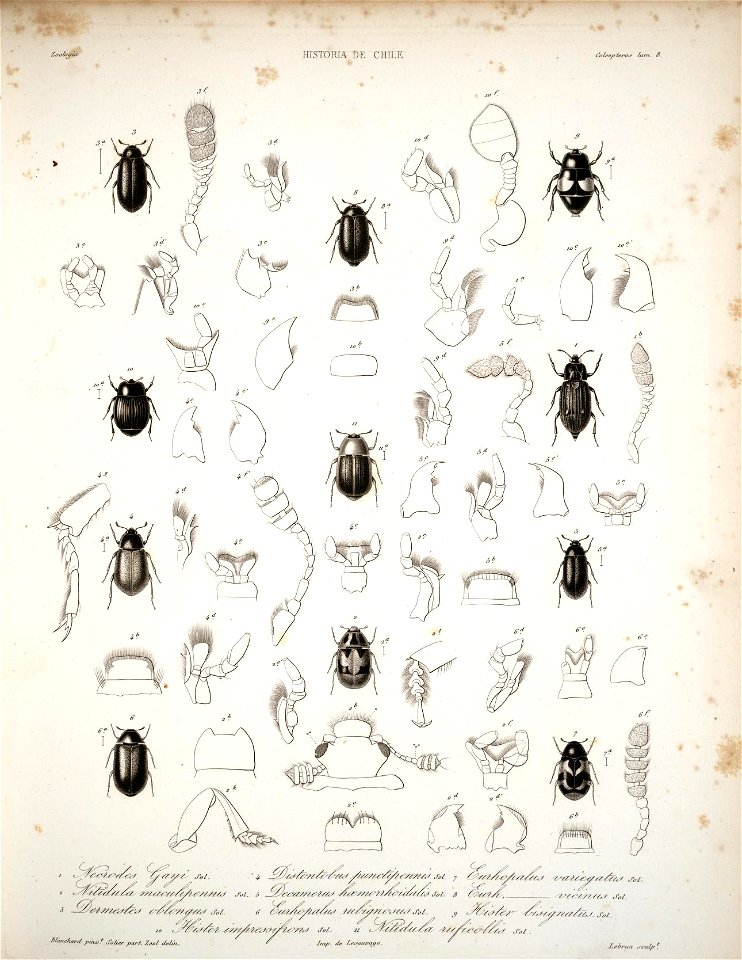 Zoologia HISTORIA DE CHILE Coleopteros lam. 8.
3 f 10 f
3 3 a 3 d 10 d 9 9 a
8 8 a
3 e 3 d' 3 c 9 d 10 c 10 c'
3 b
10 e 9 c 1 b
10 b
10 10 a 9 d 5 f 1
4 c 4 c' 11 11 a
4 g 4 f 5 c 5 d 5 c' 5 e
4 d
4 4 a 4 e 5 b 5 5 a
2 2 a
4 b 4 d 6 d 6 e 6 c
6 6 a 2 b 7 7 a 6 f
6 b
1 Necrodes Gayi Sol. 4 Distontobus punctipennis Sol. 7 Eurhopalus variegatus Sol.
2 Nitidula maculipennis Sol. 5 Decamerus hæmorrhoidalis Sol. 8 Eurh. ——— vicinus Sol.
3 Dermestes oblongus Sol. 6 Eurhopalus rubignosus Sol. 9 Hister bisignatus Sol.
10 Hister impressifrons Sol. 11 Nitidula ruficollis Sol.
Blanchard pinx.t Solier part. Zool delin. Imp. de Lesauvage. Lebrun sculp.t